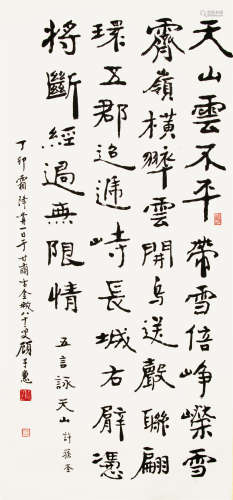 天山雲不平帶雪倍崢嶸雪
霽嶺橫翠雲開鳥送聲聯翩
環五郡迢遞峙長城右臂憑
將斷經過無限情
五言詠天山 許孫荃
丁卯霜降前一日于甘肅古金城八十叟顧子惠